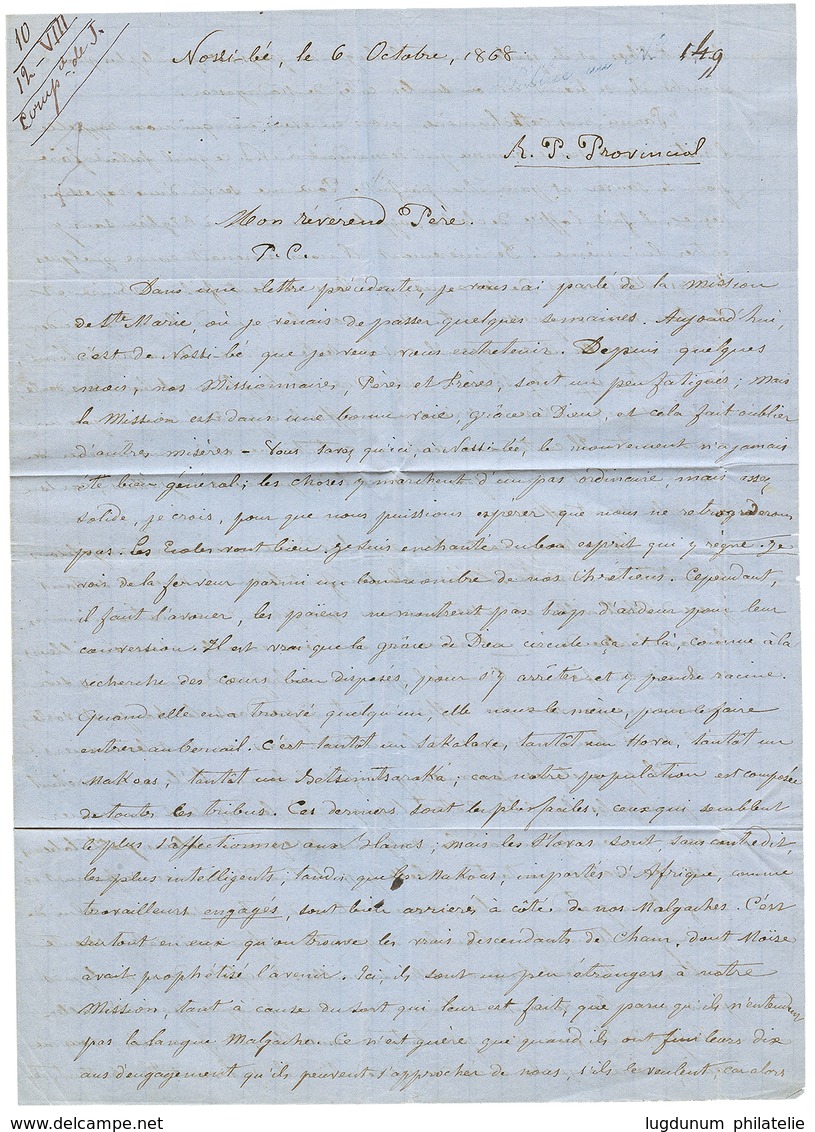 10
12 - VIII
Comp.ª de J.
Nossi-bé, le 6 Octobre, 1868.
149
R. P. Provincial
Mon révérend Père.
P. C.
Dans une lettre précédente, je vous ai parlé de la mission
de Ste Marie, où je venais de passer quelques semaines. Aujourd'hui,
c'est de Nossi-bé que je veux vous entretenir. Depuis quelques
mois, nos Missionnaires, Pères et Frères, sont un peu fatigués; mais
la Mission est dans une bonne voie, grâce à Dieu, et cela fait oublier
d'autres misères - Vous savez qu'ici, à Nossi-bé, le mouvement n'a jamais
été bien général; les choses y marchent d'un pas ordinaire, mais assez
solide, je crois, pour que nous puissions espérer que nous ne retrograderons
pas. Les Ecoles vont bien, je suis enchanté du bon esprit qui y règne. Je
vois de la ferveur parmi un bon nombre de nos Chrétiens. Cependant,
il faut l'avouer, les païens ne montrent pas trop d'ardeur pour leur
conversion. Il est vrai que la grâce de Dieu circule çà et là, comme à la
recherche des cœurs bien disposés, pour s'y arrêter et y prendre racine.
Quand elle en a trouvé quelqu'un, elle nous le mène, pour le faire
entrer au bercail. C'est tantôt un Sakalave, tantôt un Hova, tantôt un
Makoas, tantôt un Betsimitsaraka; car notre population est composée
de toutes les tribus. Ces derniers sont les plus faciles, ceux qui semblent
le plus s'affectionner aux blancs; mais les Hovas sont sans contredit,
les plus intelligents; tandis que les Makoas, importés d'Afrique, comme
travailleurs engagés, sont bien arrierés à côté de nos Malgaches. C'est
surtout en eux qu'on trouve les vrais descendants de Cham, dont Moïse
avait prophétisé l'avenir. Ici, ils sont un peu étrangers à notre
Mission, tant à cause du sort qui leur est fait, que parce qu'ils n'entendent
pas la langue Malgache. Ce n'est guère que quand ils ont fini leurs dix
ans d'engagement qu'ils peuvent s'approcher de nous, s'ils le veulent, car alors
lugdunum philatelie